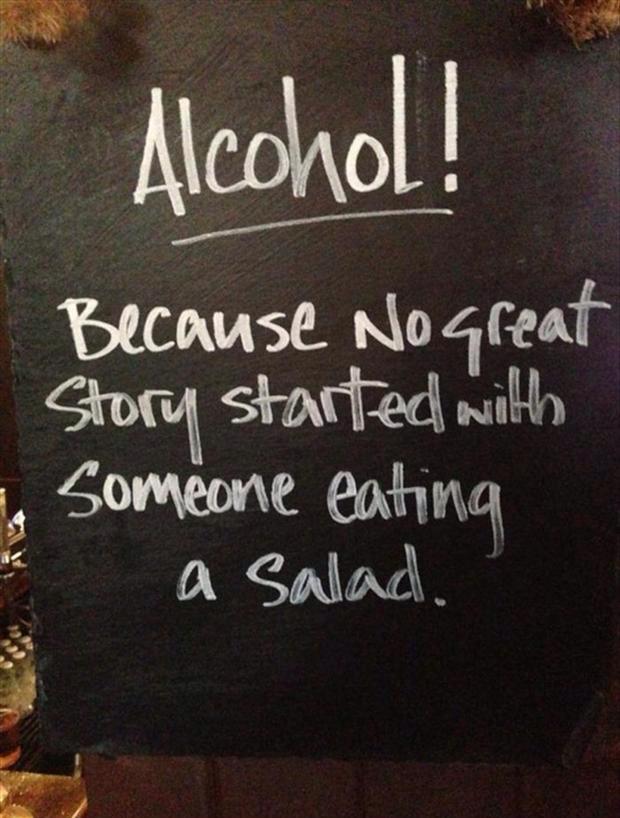 Alcohol!
Because No great
Story started with
Someone eating
a Salad.